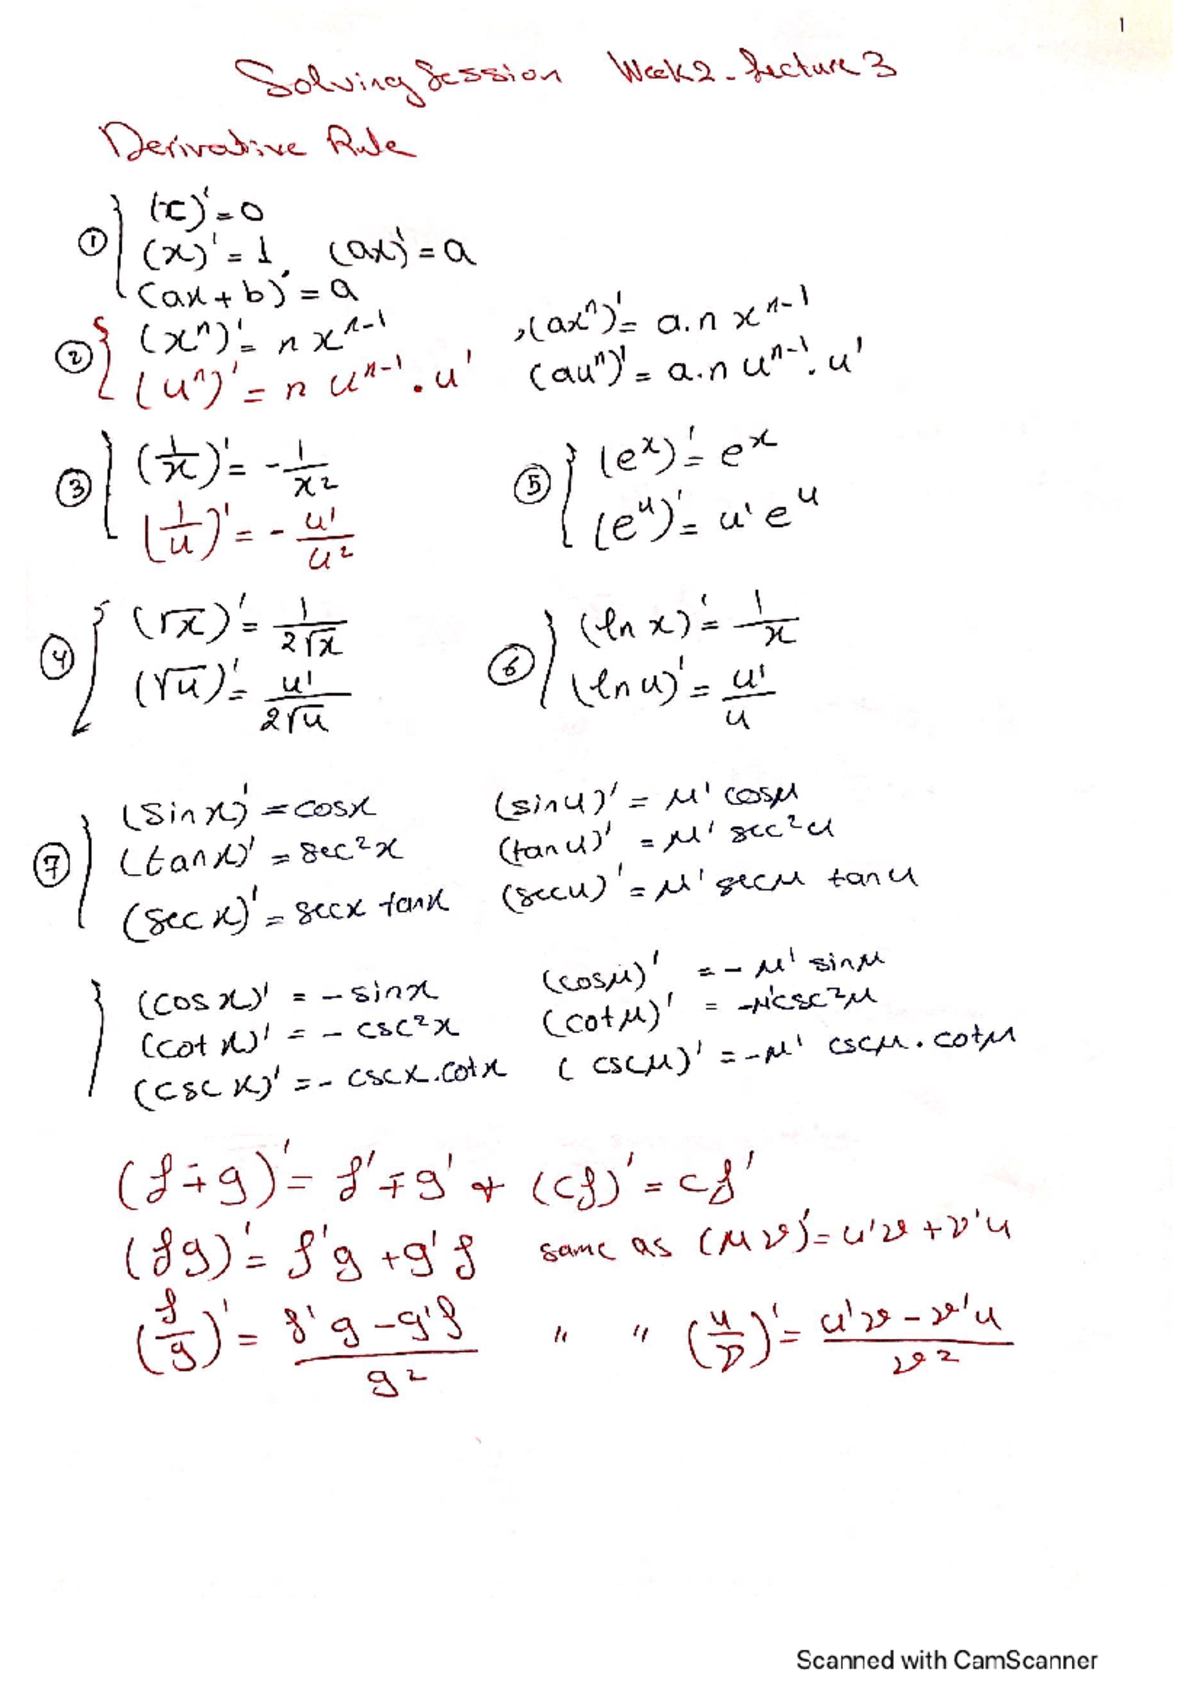 1
Solving Session Week2 - Lecture 3
Derivative Rule
① (c)' = 0
(x)' = 1, (ax)' = a
(ax + b)' = a
② (xⁿ)' = n xⁿ⁻¹ , (axⁿ)' = a.n xⁿ⁻¹
(uⁿ)' = n uⁿ⁻¹ . u' (auⁿ)' = a.n uⁿ⁻¹ . u'
③ (1/x)' = - 1/x²
(1/u)' = - u'/u²
⑤ (eˣ)' = eˣ
(eᵘ)' = u' eᵘ
④ (√x)' = 1/2√x
(√u)' = u'/2√u
⑥ (ln x)' = 1/x
(ln u)' = u'/u
⑦ (sin x)' = cosx (sin u)' = μ' cosμ
(tan x)' = sec²x (tan u)' = μ' sec²u
(sec x)' = secx tanx (sec u)' = μ' secμ tan u
(cos x)' = - sinx (cosμ)' = - μ' sinμ
(cot x)' = - csc²x (cotμ)' = -μ'csc²μ
(csc x)' = - cscx.cotx (cscμ)' = -μ' cscμ . cotμ
(f ∓ g)' = f' ∓ g' & (cf)' = cf'
(fg)' = f'g + g'f same as (μv)' = u'v + v'u
(f/g)' = f'g - g'f/g² " " (u/v)' = u'v - v'u/v²
Scanned with CamScanner